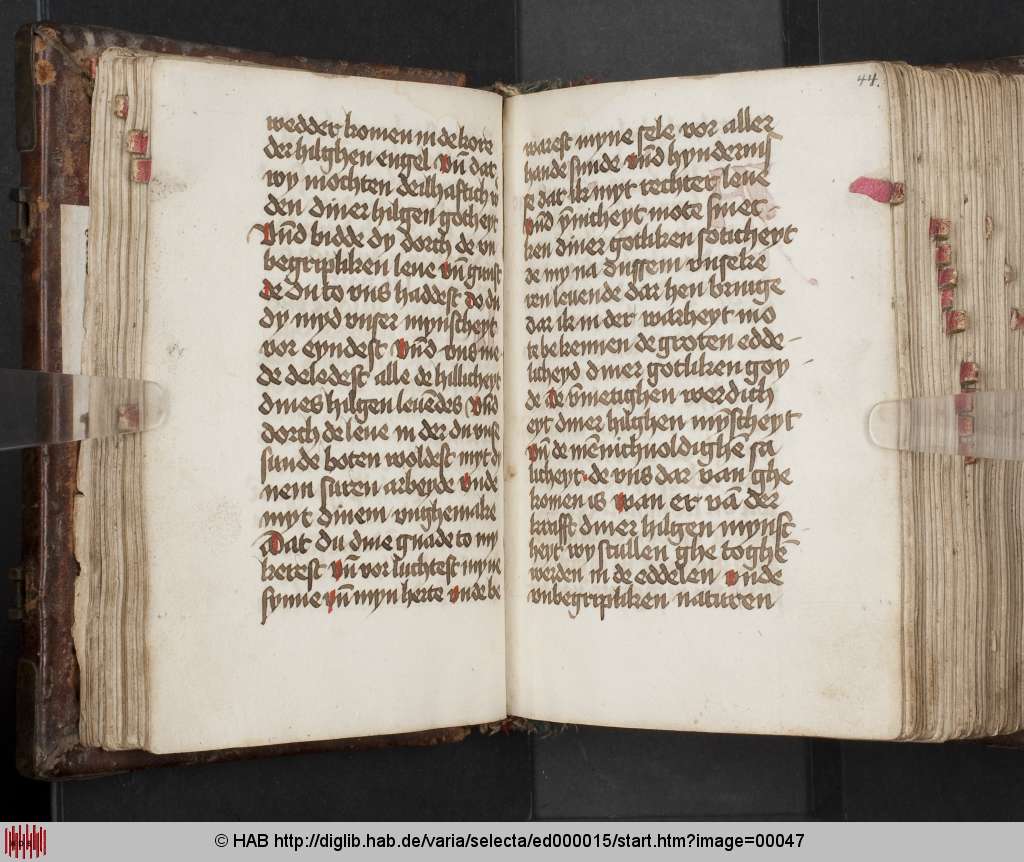 wedder komen in de kore
der hilghen engel Vn̄ dat
wy mochten deilhaftich w
den diner hilgen gotheyt
Vnd bidde dy dorch de vn
begripliken leue Vn̄ gunst
de du to vns haddest do du
dy myd vnser mynscheyt
vor eyndest Vnd vns me
de deledest alle de hillicheyt
dines hilgen leuēdes Vnd
dorch de leue in der du vnse
sunde boten woldest myt dy
nem suren arbeyde Vnde
myt dinem vnghemake
Dat du dine gnade to my
kerest Vn̄ vor luchtest myne
synne vn̄ myn herte vnde be
44.
warest myne sele vor aller
hande sunde Vnd hyndernis
se dat ik myt rechter leue
Vnd ynicheyt mote smec
ken diner gotliken soticheyt
de my na dussem vnseke
ren leuende dar hen bringe
dar ik in der warheyt mo
te bekennen de groten edde
licheyd diner gotliken goy
de De vmetighen werdich
eyt diner hilghen mȳscheyt
Vn̄ de mēnichuoldighē sa
licheyt de vns dar van ghe
komen is wan er vā der
krafft diner hilgen mynsc
heyt wy scullen ghe toghē
werden in de eddelen Vnde
vnbegripliken naturen
© HAB http://diglib.hab.de/varia/selecta/ed000015/start.htm?image=00047